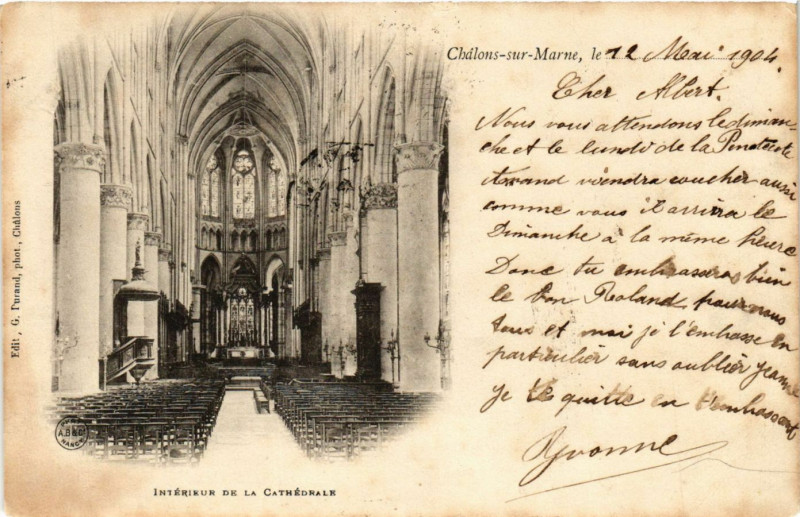 Châlons-sur-Marne, le 12 Mai 1904.
Cher Albert.
Nous vous attendons le diman-
che et le lundi de la Pentecote
viendra coucher aussi
comme vous il arrivra le
Dimanche à la même heure
Donc tu embrasseras bien
le bon Roland pour nous
tous et moi je l'embrasse en
particulier sans oublier Jeanne
je te quitte en t'embrassant
Yvonne
Edit, G. Durand, phot, Châlons
A.B&C
NANCY
INTÉRIEUR DE LA CATHÉDRALE